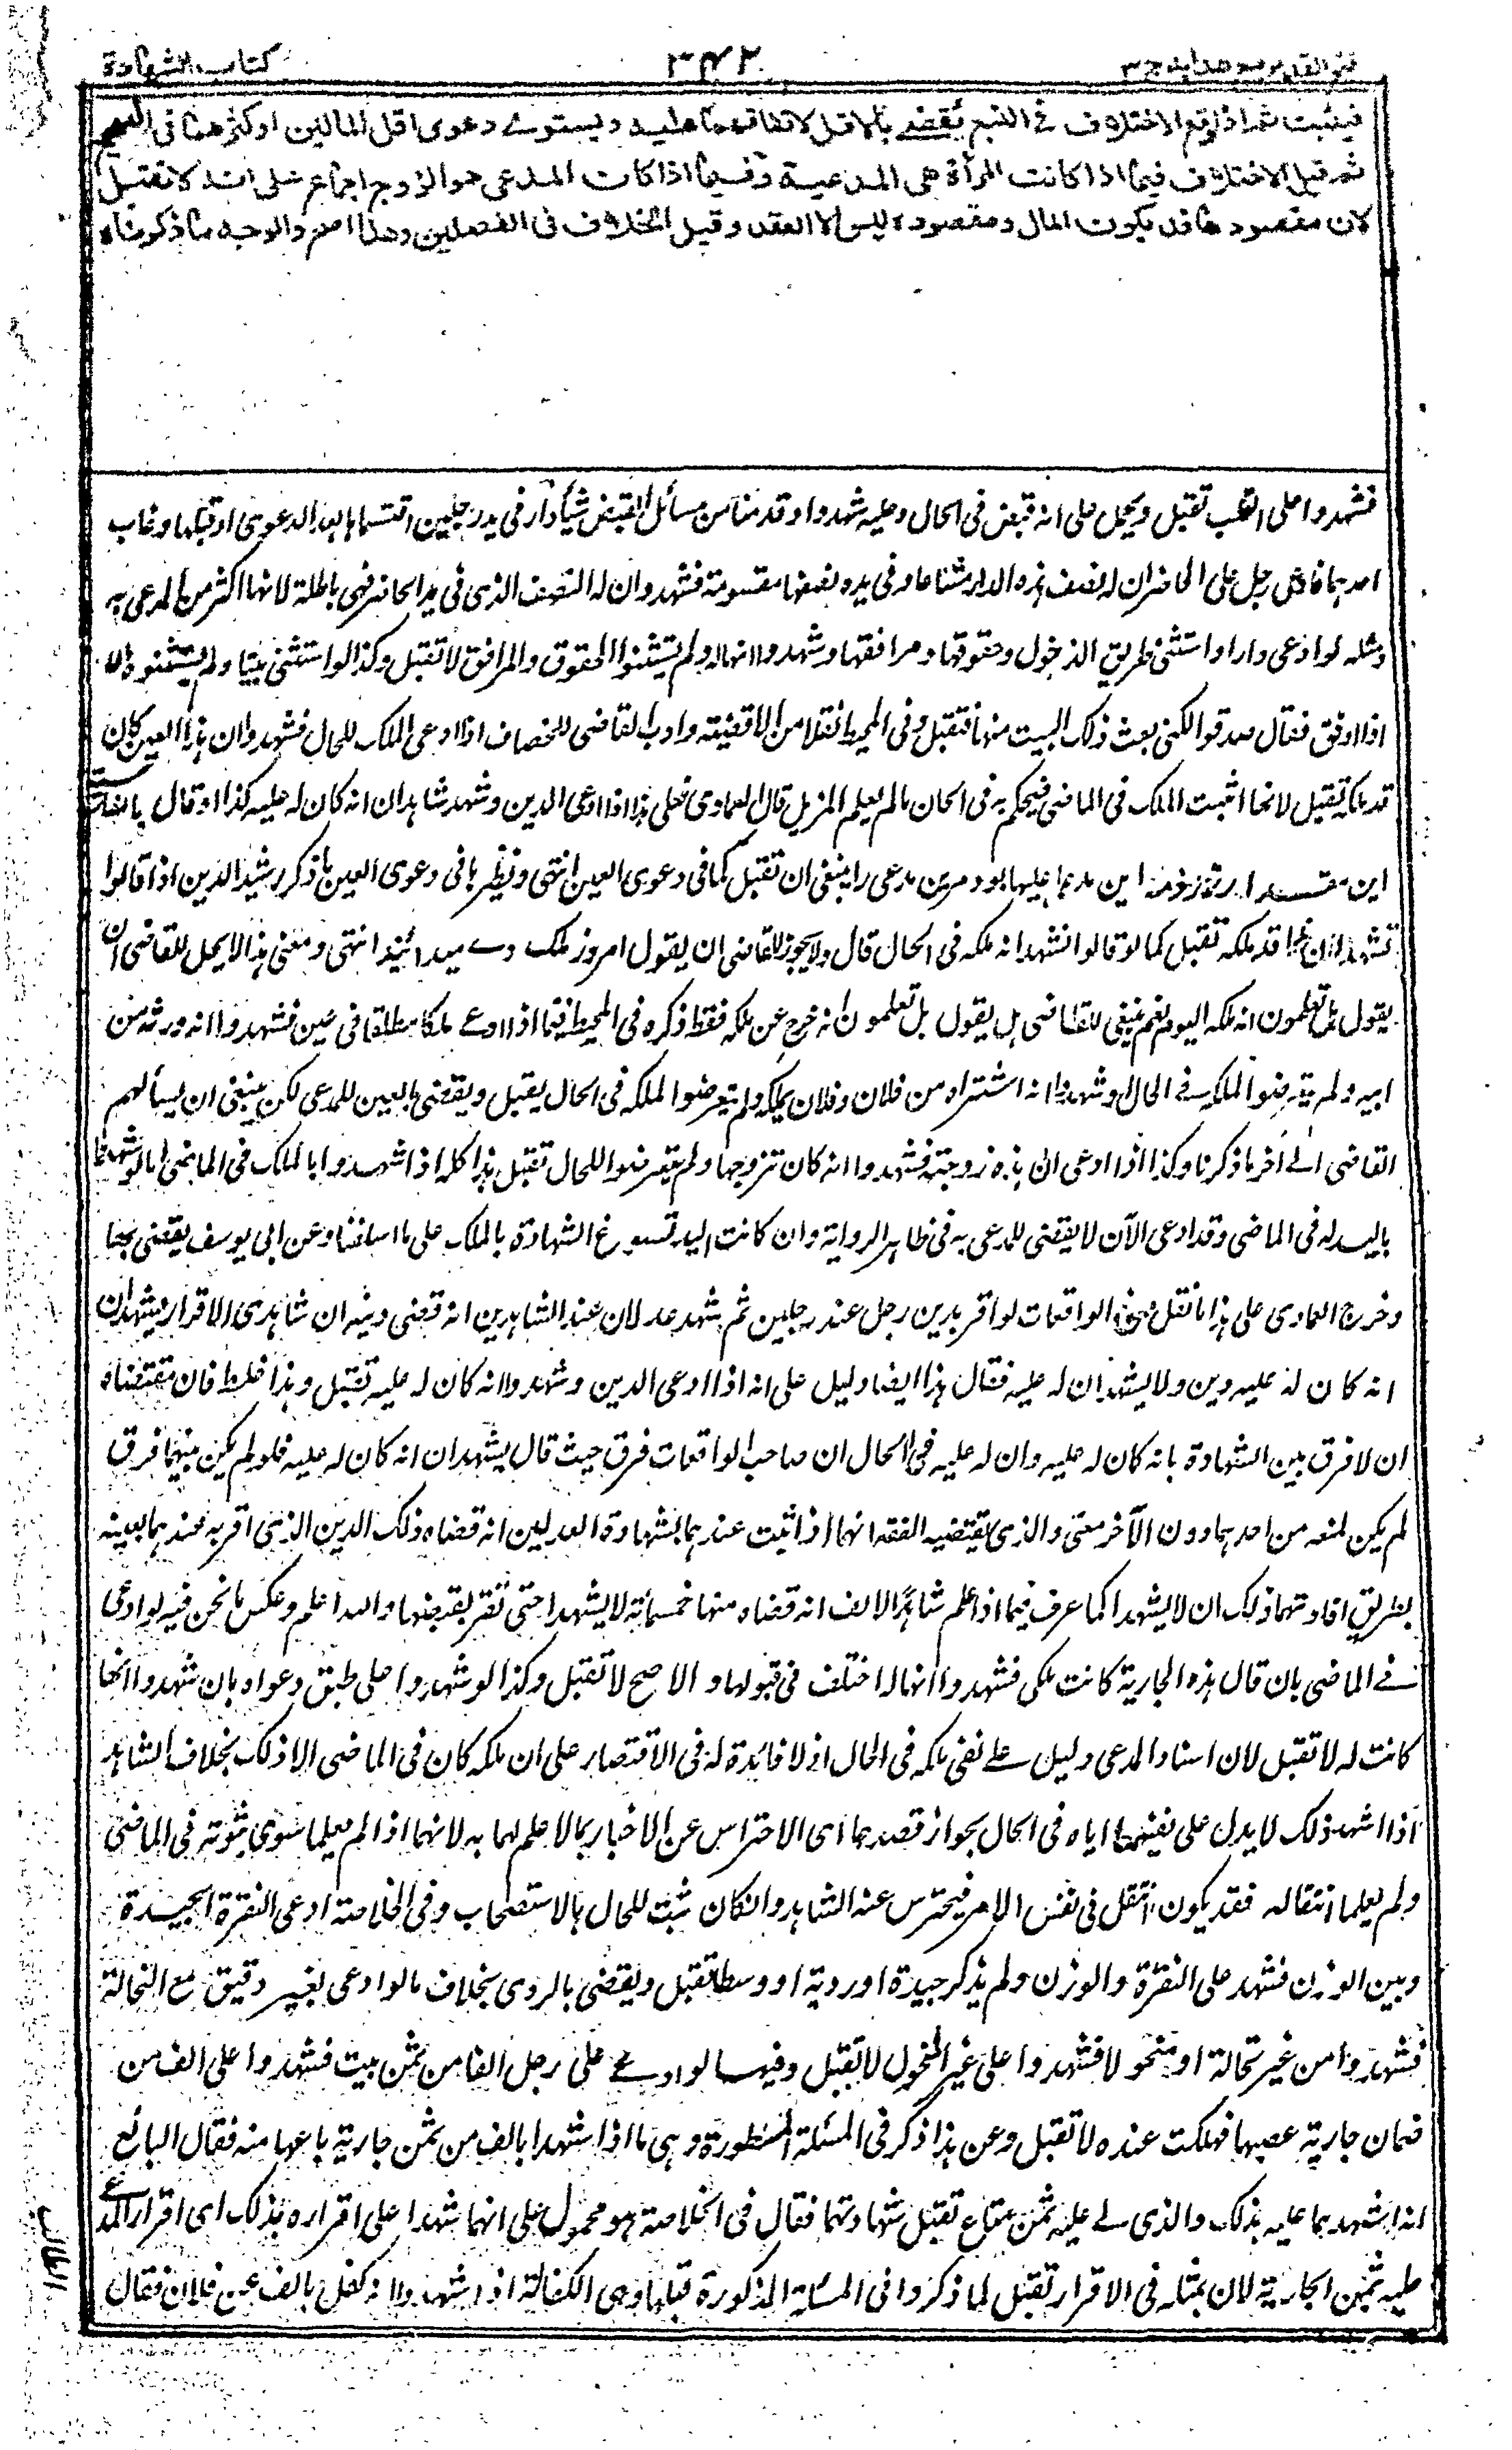 فتح القدير مع هدايه ج ٣
٣٤٢
كتاب الشهادة
فيثبت ثم اذا وقع الاختلاف في التبع يقضى بالاقل لاتفاقهما عليه ويستوى دعوى اقل المالين او اكثرهما في الصحيح
ثم قيل الاختلاف فيما اذا كانت المرأة هى المدعية وفيما اذا كان المدعى هو الزوج اجماع على انه لا تقبل
لان مقصودها قد يكون المال ومقصوده ليس الا العقد وقيل الخلاف فى الفصلين وهذا اصح والوجه ما ذكرناه
فشهدوا على القلب تقبل ويحمل على انه قبض فى الحال وعليه شهدوا وقدمنا من مسائل القبض شيأ دار فى يد رجلين اقتسماها بعد الدعوى او قبلها وغاب
احدهما فادعى رجل على الحاضر ان له نصف هذه الدار مشاعا وفى يده نصفها مقسومة فشهدوا ان له النصف الذى فى يد الحاضر فهى باطلة لانها اكثر من المدعى به
ومثله لو ادعى دارا واستثنى طريق الدخول وحقوقها ومرافقها وشهدوا انها له ولم يستثنوا الحقوق والمرافق لا تقبل وكذا لو استثنى بيتا ولم يستثنوه الا
اذا وفق فقال صدقوا لكنى بعت ذلك البيت منها فتقبل وفى المحيط نقلا من الاقضية وادب القاضى للخصاف اذا ادعى الملك للحال فشهدوا ان هذا العين كان
قد ملكه تقبل لانها اثبتت الملك فى الماضى فيحكم به فى الحال مالم يعلم المزيل قال العمادى فعلى هذا اذا ادعى الدين وشهد شاهدان انه كان له عليه كذا او قال
اين مقدار زر در ذمه اين مدعا عليها بود مرين مدعى را ينبغى ان تقبل كما فى دعوى العين انتهى ونظير ما فى دعوى العين ما ذكر رشيد الدين اذا قالوا
نشهد ان هذا قد ملكه تقبل كما لو قالوا نشهد انه ملكه فى الحال قال ولا يجوز للقاضى ان يقول امروز ملك وے ميدانيد انتهى ومعنى هذا لا يحل للقاضى ان
يقول هل تعلمون انه ملكه اليوم نعم ينبغى للقاضى ان يقول هل تعلمون انه خرج عن ملكه فقط ذكره فى المحيط فيما اذا ادعى ملكا مطلقا فى عين فشهدوا انه ورثه من
ابيه ولم يتعرضوا لملكه فى الحال او شهدوا انه اشتراه من فلان وفلان يملكه ولم يتعرضوا لملكه فى الحال يقبل ويقضى بالعين للمدعى لكن ينبغى ان يسألهم
القاضى الى آخر ما ذكرنا وكذا اذا ادعى ان هذه زوجته فشهدوا انه كان تزوجها ولم يتعرضوا للحال تقبل هذا كله اذا شهدوا بالملك فى الماضى اما لو شهدوا
باليد له فى الماضى وقد ادعى الآن لا يقضى للمدعى به فى ظاهر الرواية وان كانت اليد تسوغ الشهادة بالملك على ما اسلفنا وعن ابى يوسف يقضى بها
وخرج العمادى على هذا ما نقل عن الواقعات لو اقر بدين رجل عند رجلين ثم شهد عدلان عند الشاهدين انه قضى دينه ان شاهدى الاقرار يشهدان
انه كان له عليه دين ولا يشهدان له عليه فقال هذا ايضا دليل على انه اذا ادعى الدين وشهدوا انه كان له عليه تقبل وهذا غلط فان مقتضاه
ان لا فرق بين الشهادة بانه كان له عليه وان له عليه فى الحال ان صاحب الواقعات فرق حيث قال يشهدان انه كان له عليه فلو لم يكن بينهما فرق
لم يكن لمنعه من احدهما دون الآخر معنى والذى يقتضيه الفقه انهما اذا ثبت عندهما بشهادة العدلين انه قضاه ذلك الدين الذى اقر به عندهما بعينه
بطريق افادتهما ذلك ان لا يشهدا كما عرف فيما اذا علم شاهدا الالف انه قضاه منها خمسمائة لا يشهدا حتى تقر بقبضها والله اعلم وعكس ما نحن فيه لو ادعى
فى الماضى بان قال هذه الجارية كانت ملكى فشهدوا انها له اختلف فى قبولها والاصح لا تقبل وكذا لو شهدوا على طبق دعواه بان شهدوا انها
كانت له لا تقبل لان اسناد المدعى دليل على نفى ملكه فى الحال اذ لا فائدة له فى الاقتصار على ان ملكه كان فى الماضى الا ذلك بخلاف الشاهد
اذا شهد ذلك لا يدل على نفيهما اياه فى الحال بجواز قصدهما اى الاحتراس عن الاخبار بما لا علم لهما به لانهما اذا لم يعلما سوى ثبوته فى الماضى
ولم يعلما انتقاله فقد يكون انتقل فى نفس الامر فيحترس عنه الشاهد وان كان ثبت للحال بالاستصحاب وفى الخلاصة ادعى النقرة الجيدة
وبين الوزن فشهد على النقرة والوزن ولم يذكر جيدة او ردية او وسطا تقبل ويقضى بالردى بخلاف ما لو ادعى بغير دقيق مع النخالة
فشهدوا من غير نخالة او منخولا فشهدوا على غير المنخول لا تقبل وفيها لو ادعى على رجل الفا من ثمن بيت فشهدوا على الف من
ضمان جارية غصبها فهلكت عنده لا تقبل وعن هذا ذكر فى المسئلة المسطورة وهى ما اذا شهدا بالف من ثمن جارية باعها منه فقال البائع
انه اشهدهما عليه بذلك والذى لى عليه ثمن متاع تقبل شهادتهما فقال فى الخلاصة هو محمول على انهما شهدا على اقراره بذلك اى اقرار المدعى
عليه بثمن الجارية لان بمثله فى الاقرار تقبل لما ذكروا فى المسئلة المذكورة قبلها وهى الكفالة اذا شهدوا انه كفل بالف عن فلان فقال
الطالب